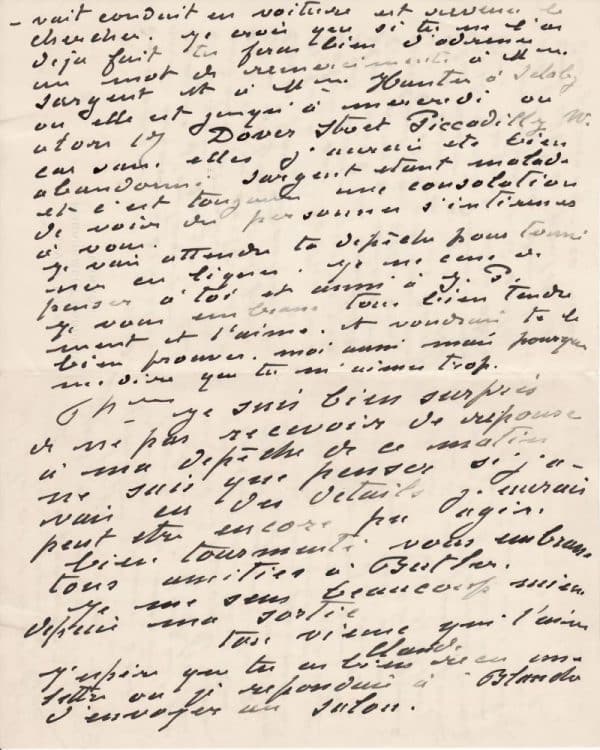 - vait conduit en voiture est revenu le
chercher. Je crois que si tu ne l'as
deja fait tu feras bien d'adresser
un mot de remerciments à Mrs.
Sargent et à Mrs. Hunter à Selaby
ou elle est jusqu'à mercredi ou
alors 19 Dover Street Piccadilly W.
car sans elles j'aurais ete bien
abandonné. Sargent etant malade
et c'est toujours une consolation
de voir des personnes s'interesser
à vous.
Je vais attendre ta depêche pour termi
ner ces lignes. Je ne cesse de
penser à toi et aussi à J. P.
Je vous embrasse tous bien tendre
ment et t'aime. et voudrais te le
bien prouver. moi aussi mais pourquoi
me dire que tu m'aimes trop.
Je suis bien surpris
de ne pas recevoir de reponse
à ma depêche de ce matin
ne sais que penser si j'a-
vais eu des details j'aurais
peut etre encore pu agir.
bien tourmenté vous embrasse
tous amities à Butler.
Je me sens beaucoup mieux
depuis ma sortie
ton vieux qui t'aime
Claude
J'espère que tu as bien recu une
lettre ou je repondais à Blanche
d'envoyer au salon.